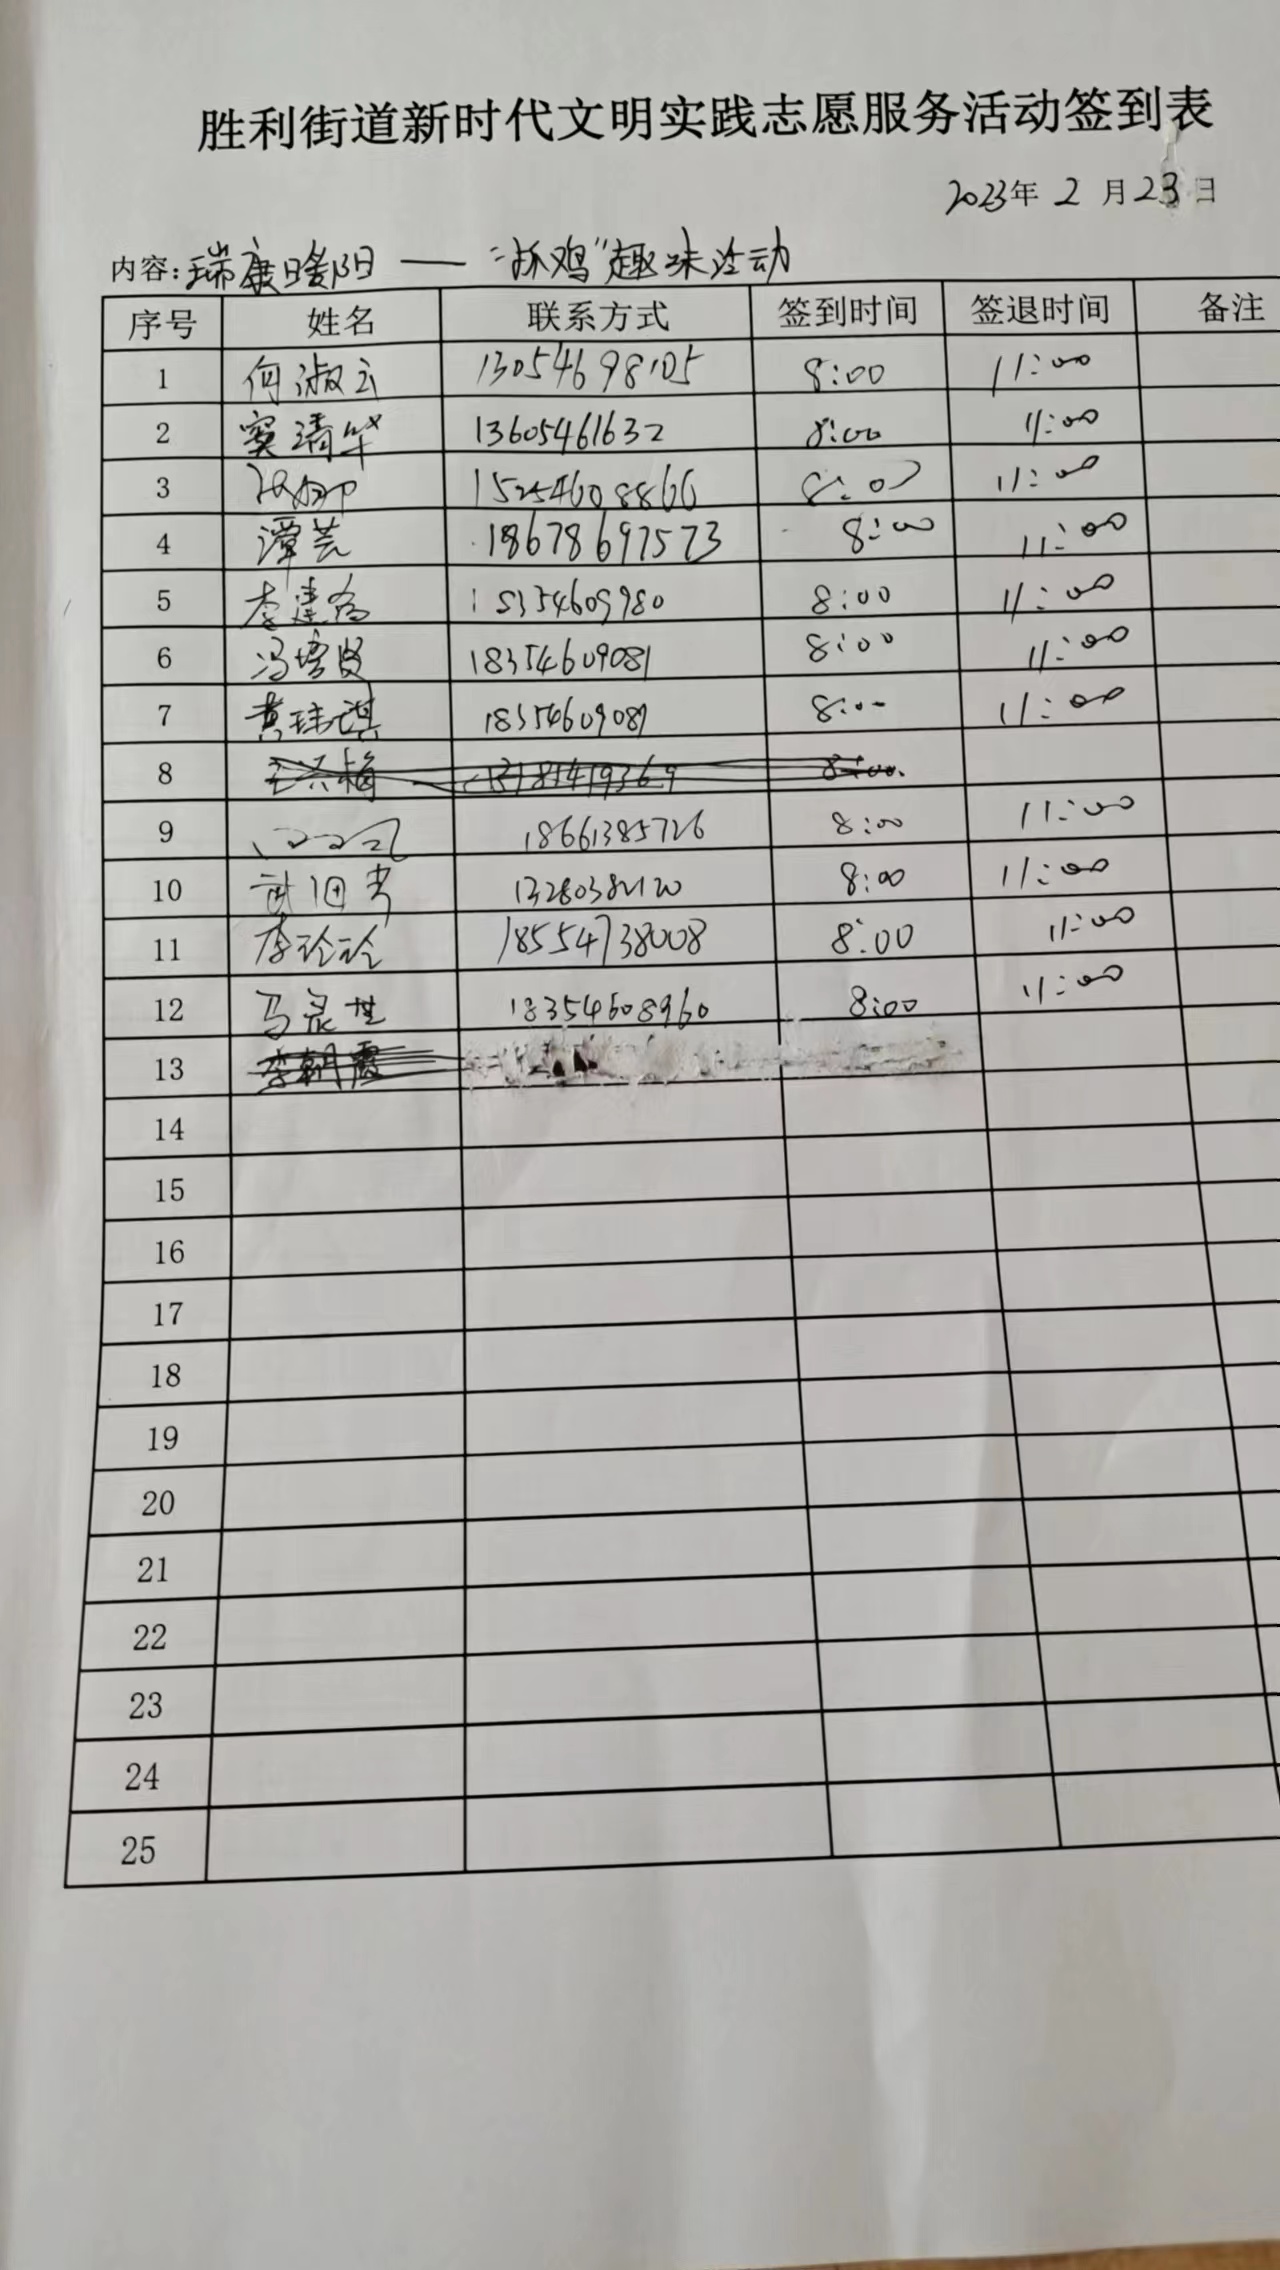 胜利街道新时代文明实践志愿服务活动签到表
2023年 2 月 23 日
内容:瑞康暖阳——"抓鸡"趣味活动
序号 姓名 联系方式 签到时间 签退时间 备注
1 何淑云 13054698105 8:00 11:00
2 窦清华 13605461632 8:00 11:00
3 15254608866 8:00 11:00
4 谭芸 18678697573 8:00 11:00
5 李建 15354609980 8:00 11:00
6 冯培贤 18354609081 8:00 11:00
7 黄珠琪 18354609081 8:00 11:00
8 王兴梅 13181419369 8:00
9 18661385726 8:00 11:00
10 武 8:00 11:00
11 李玲玲 18554738008 8:00 11:00
12 马 18354608960 8:00 11:00
13 李朝霞
14
15
16
17
18
19
20
21
22
23
24
25